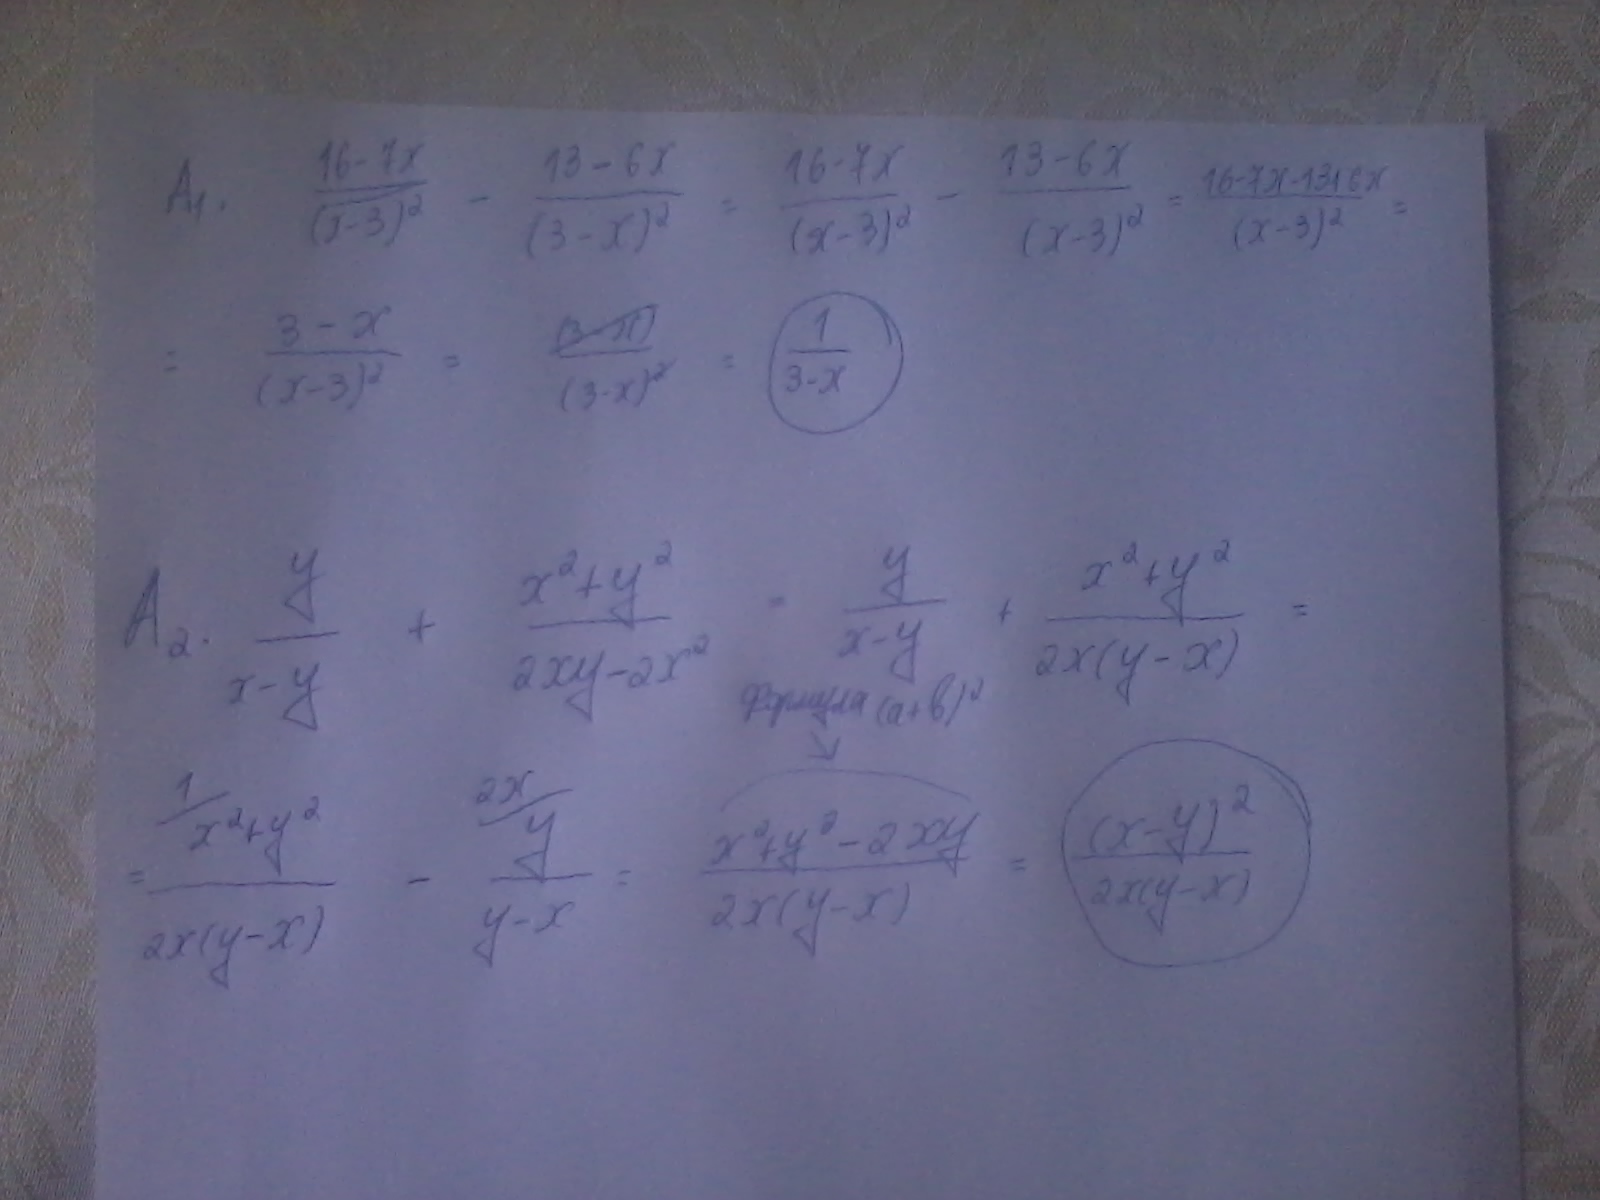 A₁. (16-7x)/(x-3)² - (13-6x)/(3-x)² = (16-7x)/(x-3)² - (13-6x)/(x-3)² = (16-7x-13+6x)/(x-3)² =
= (3-x)/(x-3)² = (3-x)/(3-x)² = 1/(3-x)
A₂. y/(x-y) + (x²+y²)/(2xy-2x²) = y/(x-y) + (x²+y²)/(2x(y-x)) =
Формула (a+b)²
= 1/ (x²+y²)/(2x(y-x)) - 2x/ y/(y-x) = (x²+y²-2xy)/(2x(y-x)) = (x-y)²/(2x(y-x))